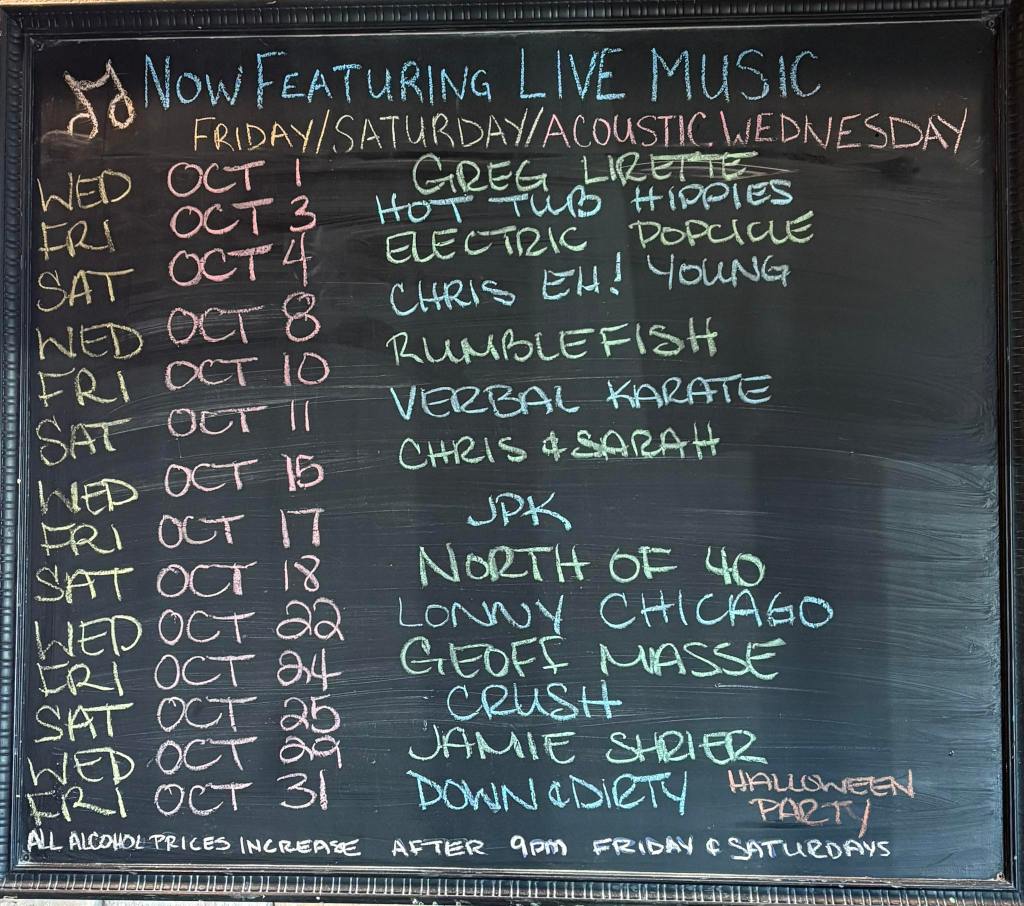 NOW FEATURING LIVE MUSIC
FRIDAY/SATURDAY/ACOUSTIC WEDNESDAY
WED OCT 1 GREG LIRETTE
FRI OCT 3 HOT TUB HIPPIES
SAT OCT 4 ELECTRIC POPCICLE
WED OCT 8 CHRIS EH! YOUNG
FRI OCT 10 RUMBLEFISH
SAT OCT 11 VERBAL KARATE
WED OCT 15 CHRIS & SARAH
FRI OCT 17 JPK
SAT OCT 18 NORTH OF 40
WED OCT 22 LONNY CHICAGO
FRI OCT 24 GEOFF MASSE
SAT OCT 25 CRUSH
WED OCT 29 JAMIE SHRIER
FRI OCT 31 DOWN & DIRTY HALLOWEEN PARTY
ALL ALCOHOL PRICES INCREASE AFTER 9PM FRIDAY & SATURDAYS